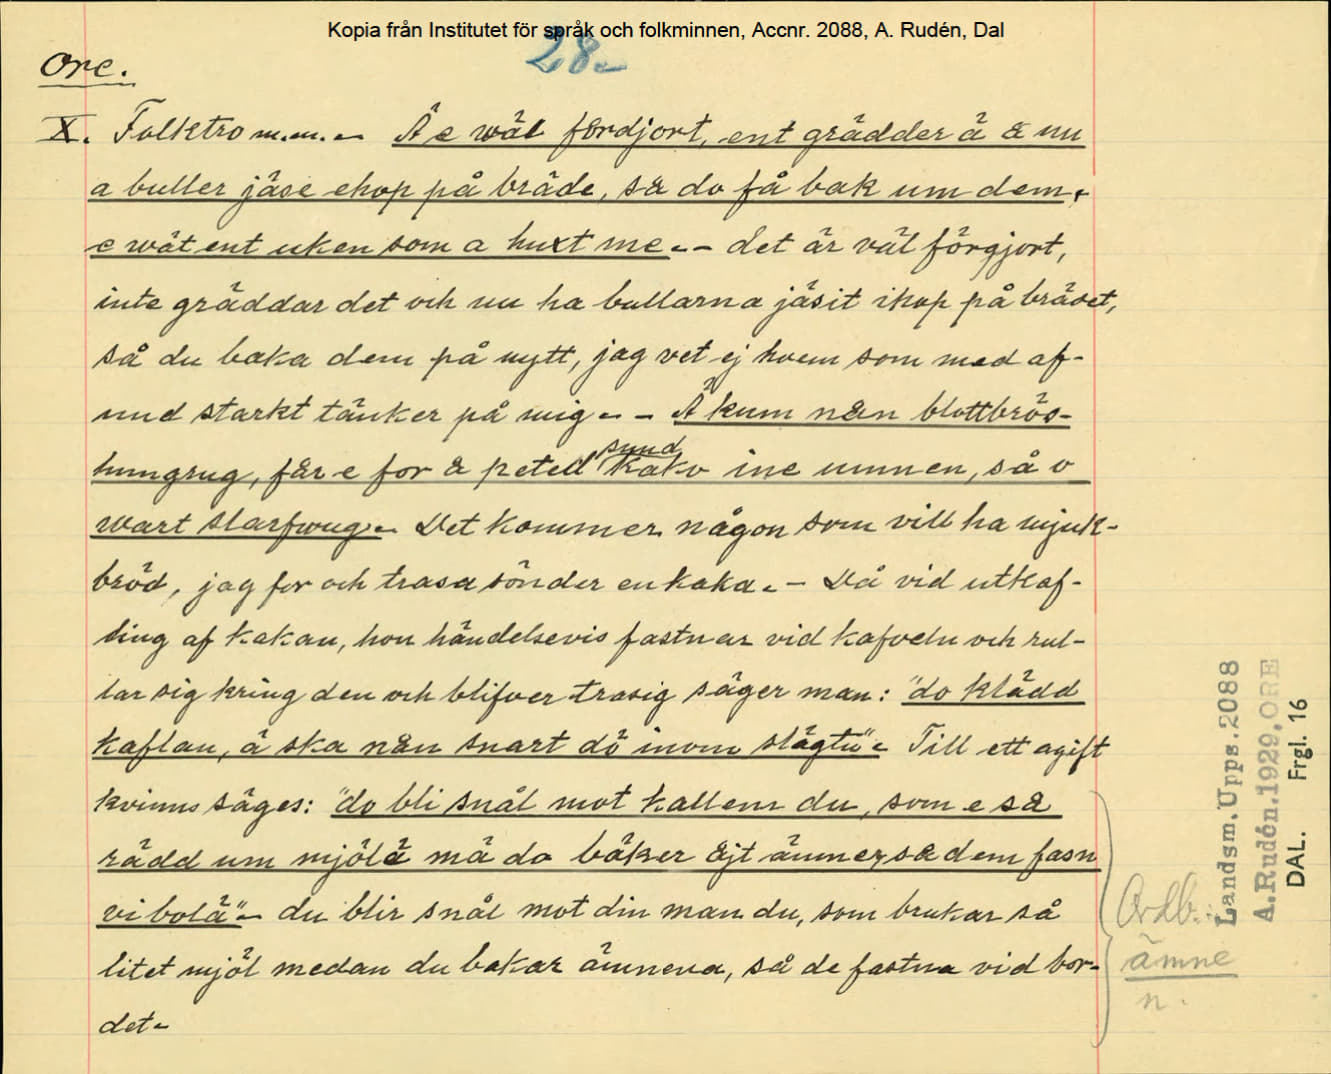 Kopia från Institutet för språk och folkminnen, Accnr. 2088, A. Rudén, Dal
28.
Ore.
X. Folktro m.m. – Ä e wäl fördjort, ent grädder ä & nu
a buller jäse ehop på bräde, så do få bak um dem,
e wät ent uken som a huxt me. – det är väl förgjort,
inte gräddar det och nu ha bullarna jäsit ihop på brädet,
så du baka dem på nytt, jag vet ej hvem som med af-
und starkt tänker på mig. – Ä kum nån blottbrös-
hungrug, får e for å peted sund kako ine umnen, så o
wart slarfwug. Det kommer någon som vill ha mjuk-
bröd, jag for och trasa sönder en kaka. – Då vid utkaf-
ling af kakan, hon händelsevis fastnar vid kafveln och rul-
lar sig kring den och blifver trasig säger man: "do klädd
kaflan, ä ska nån snart dö inom slägtn". Till ett ogift
kvinns säges: "do bli snål mot kallem du, som e så
rädd um mjölä mä do bäker äjt ämner, så dem fasn
vi bolä" – du blir snål mot din man du, som brukar så
litet mjöl medan du bakar ämnena, så de fastna vid bor-
det –
Ordb.:
ämne
n.
Landsm. Upps. 2088
A. Rudén. 1929, ORE
DAL. Frgl. 16